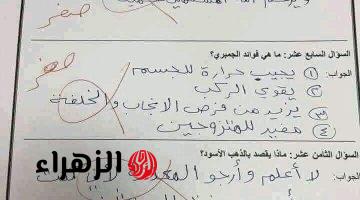 ويرحم الله المستقدمين
صفر
السؤال السابع عشر: ما هي فوائد الجمبري؟
الجواب: ① يجيب حرارة للجسم
صفر
② يقوي الركب
③ يزيد من فرص الانجاب والخلفة
④ مفيد للمتزوجين
السؤال الثامن عشر: ماذا يقصد بالذهب الأسود؟
الجواب: لا أعلم وأرجو
الزهراء